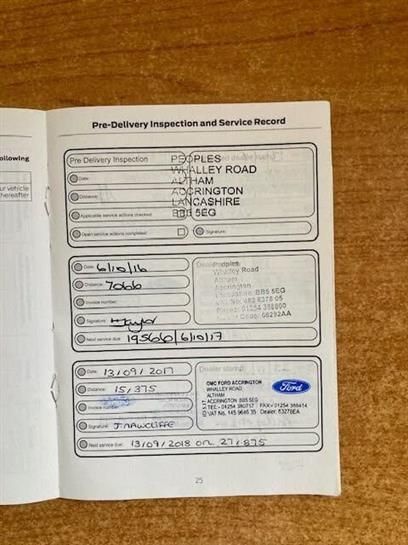 Pre-Delivery Inspection and Service Record
ollowing
ur vehicle
thereafter
Pre Delivery Inspection
PEOPLES
WHALLEY ROAD
ALTHAM
ACCRINGTON
LANCASHIRE
BB5 5EG
Date:
Distance:
Applicable service actions checked:
Open service actions completed:
Signature:
Date: 6/10/16
Distance: 7066
Invoice number:
Signature:
Next service due: 19566/6/10/17
Peoples
Whalley Road
Altham
Accrington
Lancashire BB5 5EG
Date: 13/09/2017
Distance: 15,375
Invoice number
Signature: J. RAWCLIFFE
Next service due: 13/09/2018 OR 27,875
Dealer stamp
GMC FORD ACCRINGTON
WHALLEY ROAD,
ALTHAM
ACCRINGTON BB5 5EG
TEL:- 01254 380717 FAX:- 01254 388414
VAT No. 145 9646 35 Dealer: 63278EA
Ford
25